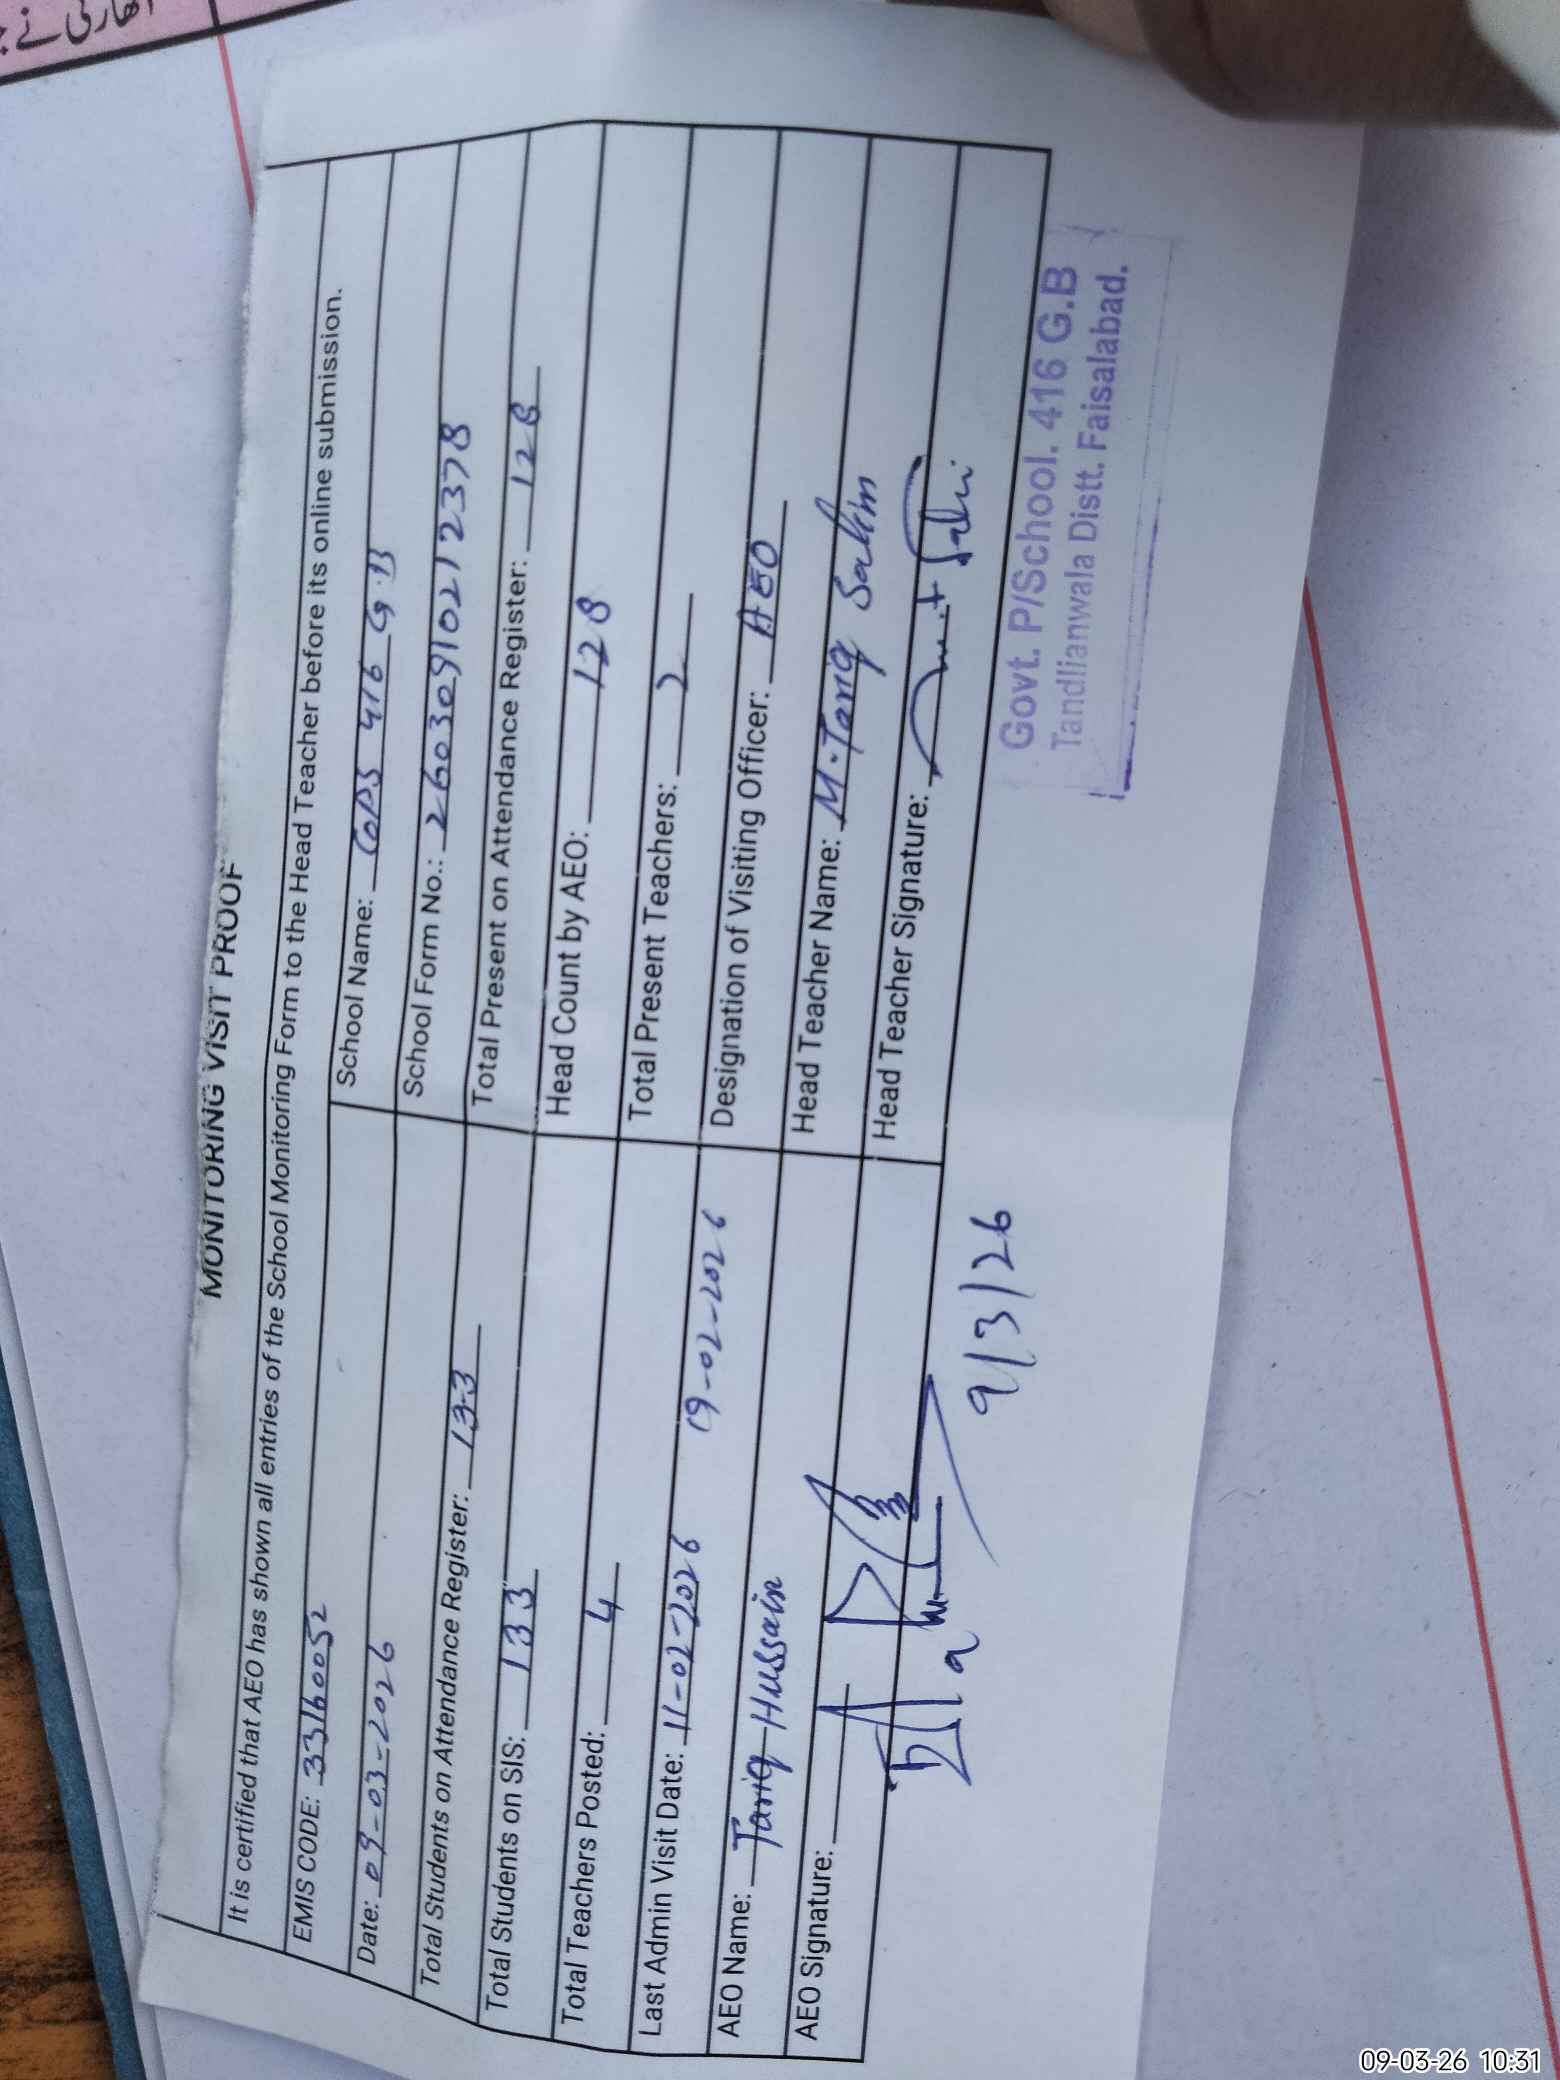 MONITORING VISIT PROOF
It is certified that AEO has shown all entries of the School Monitoring Form to the Head Teacher before its online submission.
EMIS CODE: 33160052 School Name: GPS 416 G.B
Date: 09-03-2026 School Form No.: 2603091021 2378
Total Students on Attendance Register: 133 Total Present on Attendance Register: 128
Total Students on SIS: 133 Head Count by AEO: 128
Total Teachers Posted: 4 Total Present Teachers: 2
Last Admin Visit Date: 11-02-2026 19-02-2026 Designation of Visiting Officer: AEO
AEO Name: Tariq Hussain Head Teacher Name: M. Tariq Salim
AEO Signature: Head Teacher Signature:
9/3/26
Govt. P/School. 416 G.B
Tandlianwala Distt. Faisalabad.
09-03-26 10:31